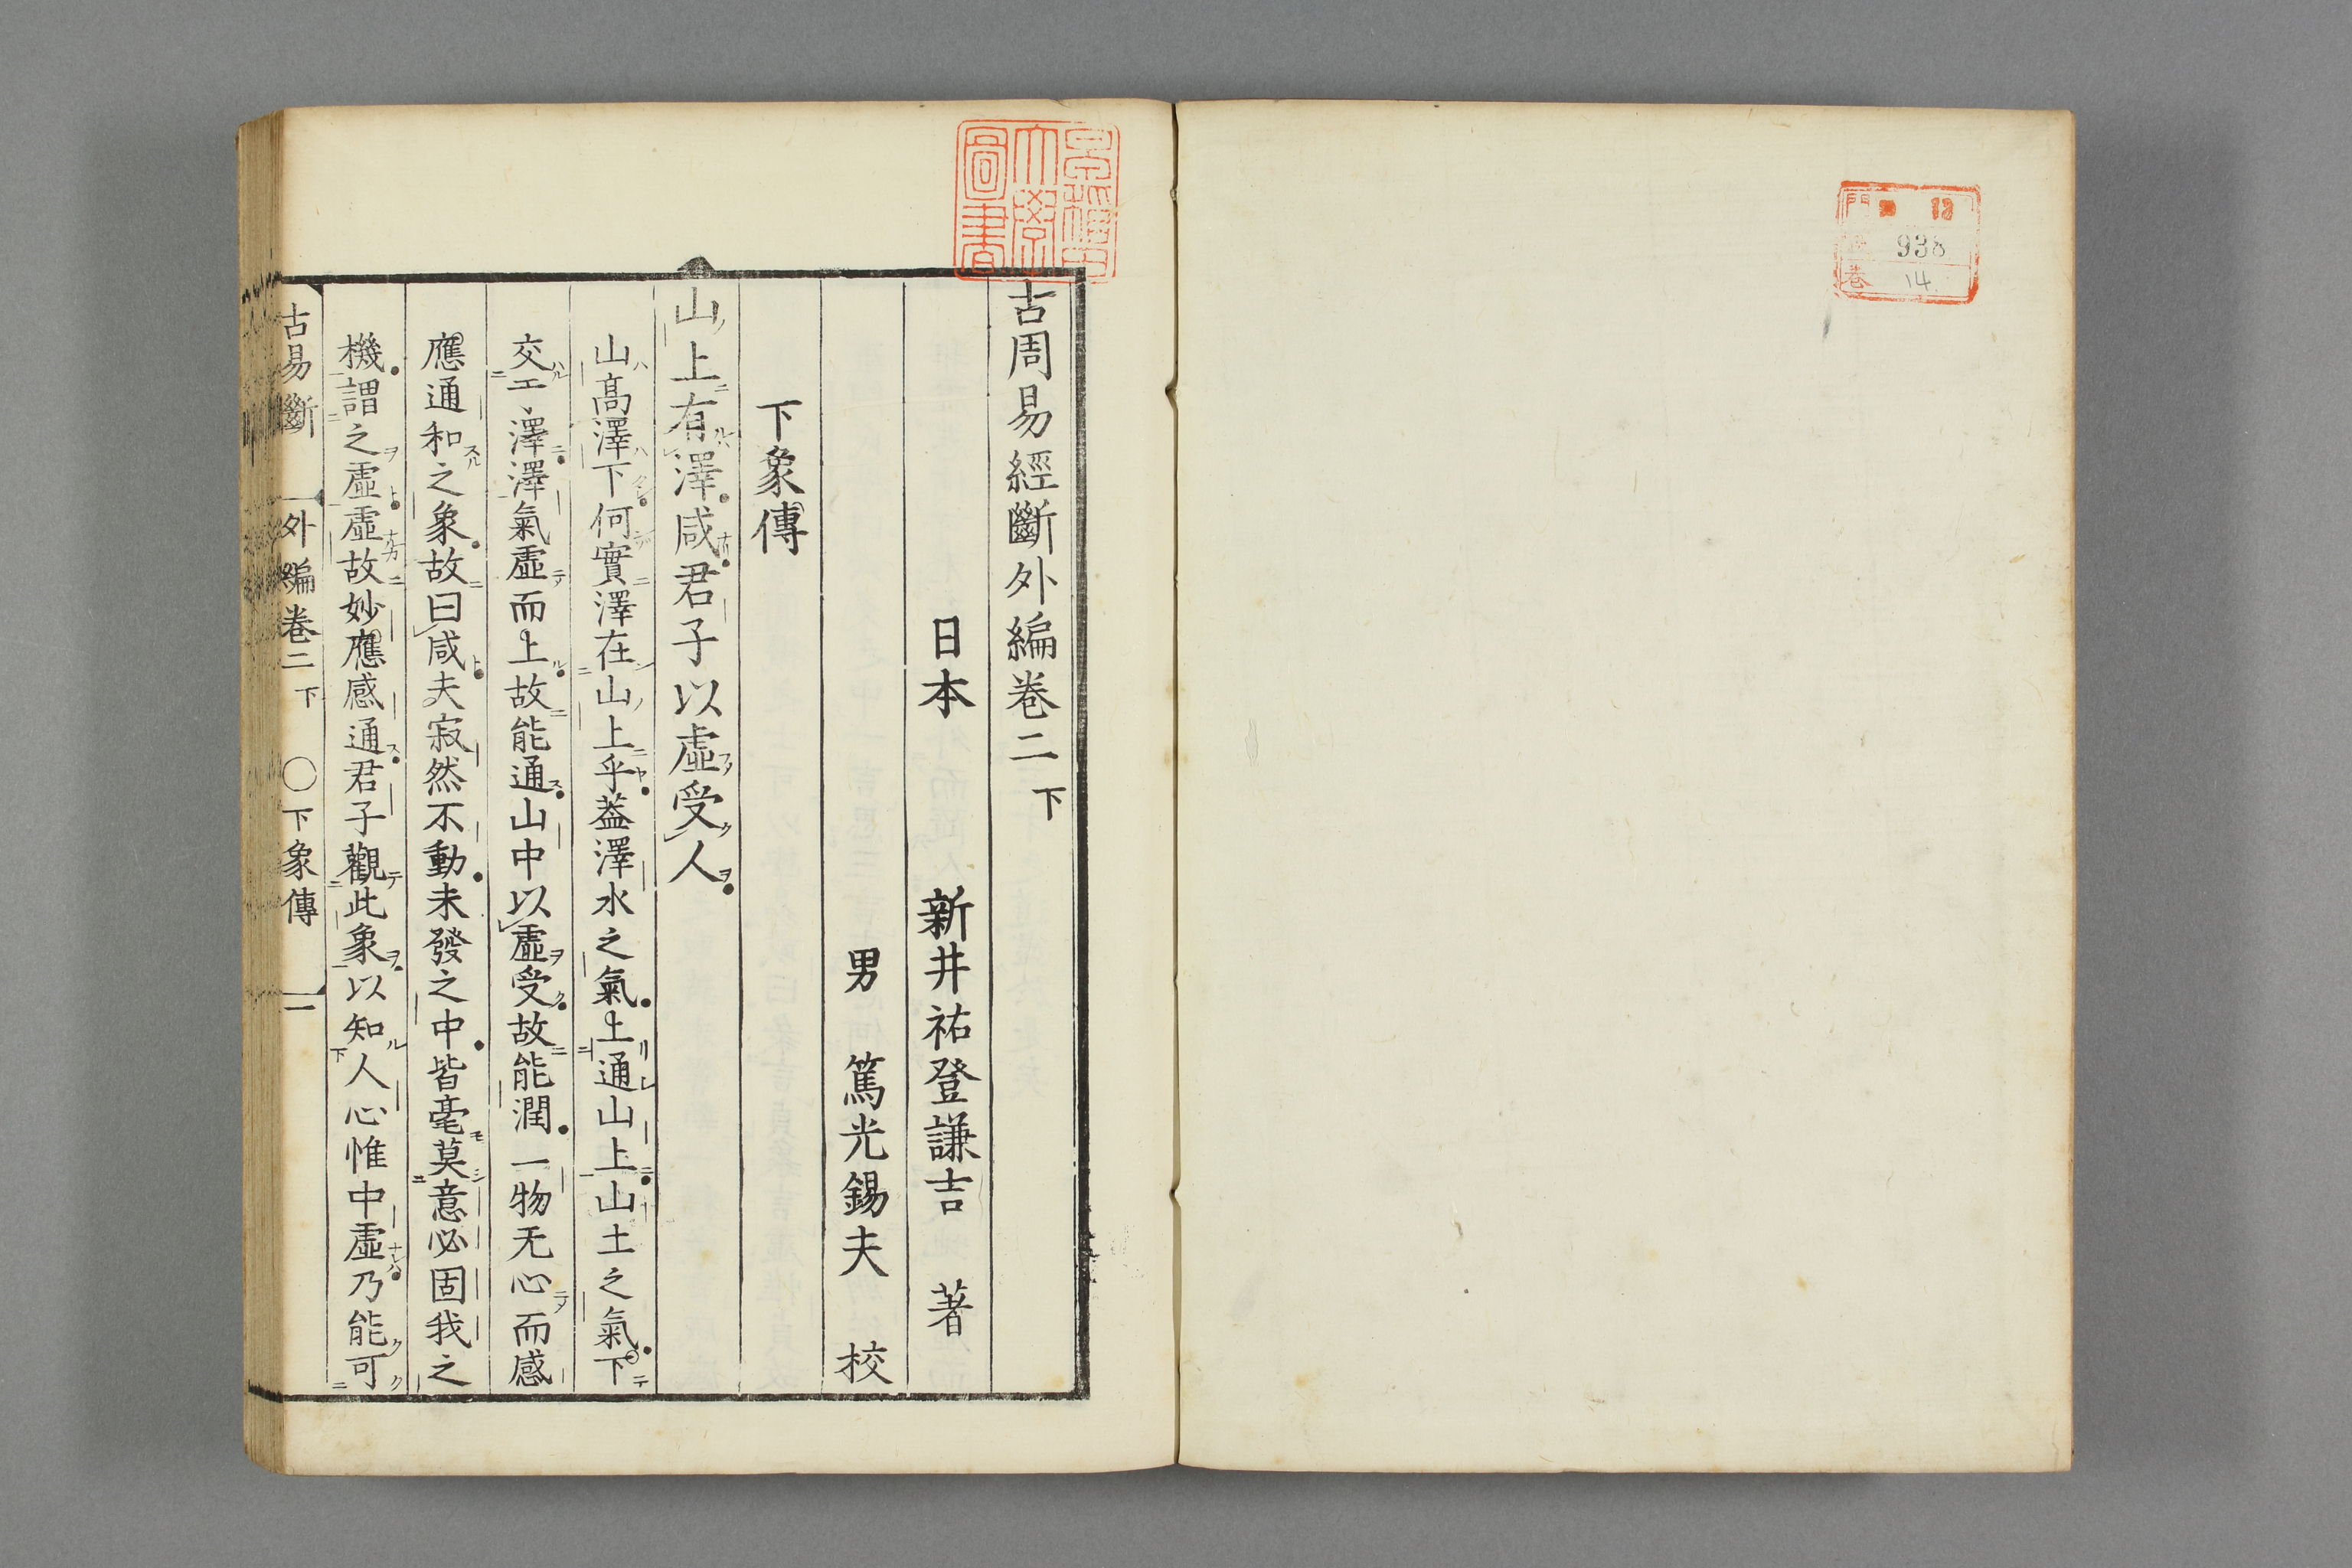 門
號 938
卷 14
早稻田
大學
圖書
古周易經斷外編卷二下
日本 新井祐登謙吉 著
男 篤光錫夫 校
下象傳
山上有澤咸君子以虛受人
山高澤下何實澤在山上乎蓋澤水之氣上通山上山土之氣下
交于澤澤氣虛而上故能通山中以虛受故能潤一物无心而感
應通和之象故曰咸夫寂然不動未發之中皆毫莫意必固我之
機謂之虛虛故妙應感通君子觀此象以知人心惟中虛乃能可
古易斷 外編卷二下 〇下象傳 一